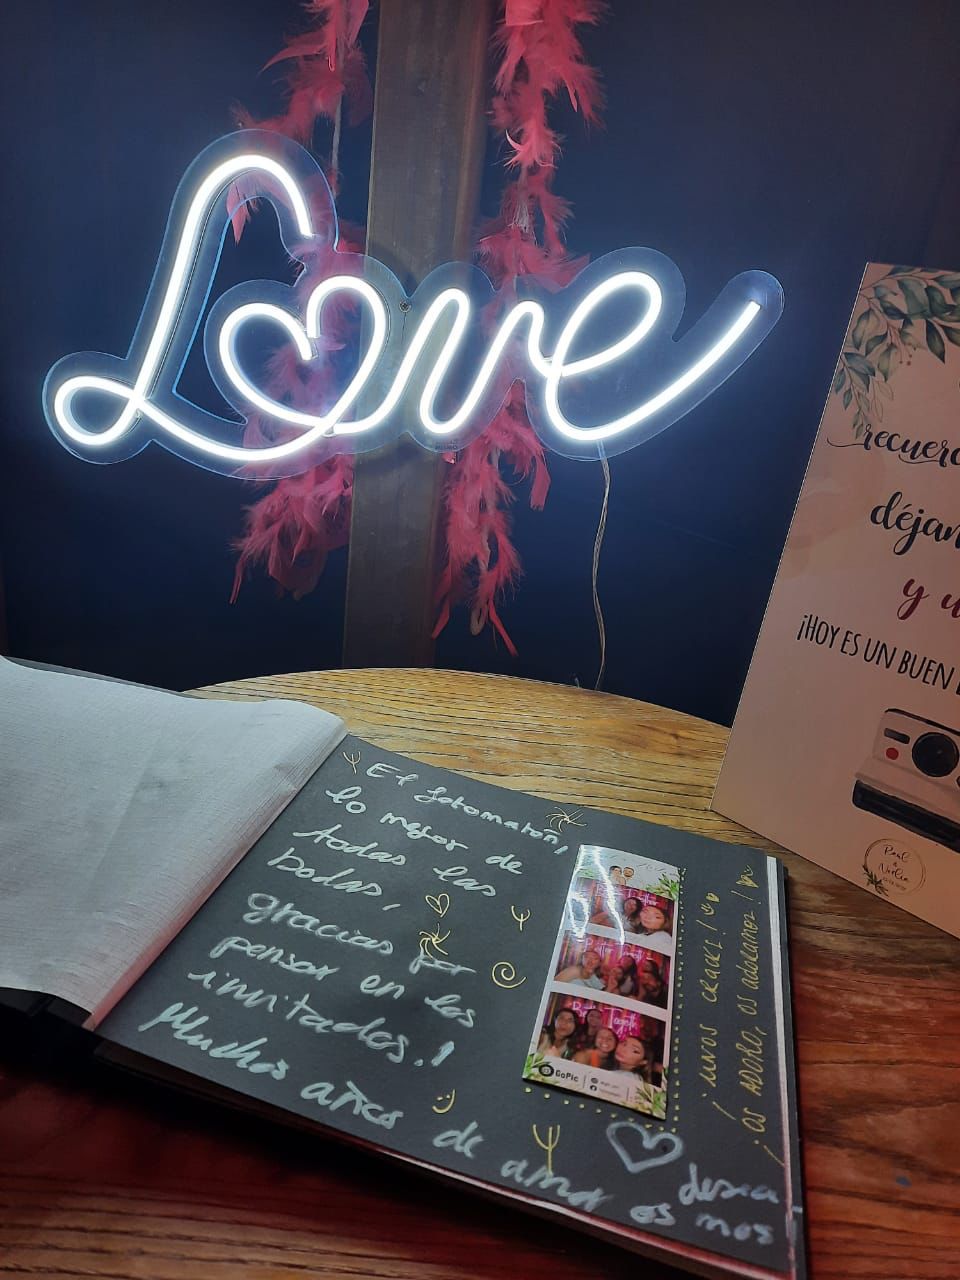 Love
recuerd
déjan
y u
¡HOY ES UN BUEN
Raúl
&
Noelia
El fotomatón,
lo mejor de
todas las
bodas,
gracias por
pensar en los
invitados.!
Muchos años de amor os
desea
mos
¡unos cracks!
¡os ADORO, os adoramos!
Better
Better Together
Better Together
GoPic